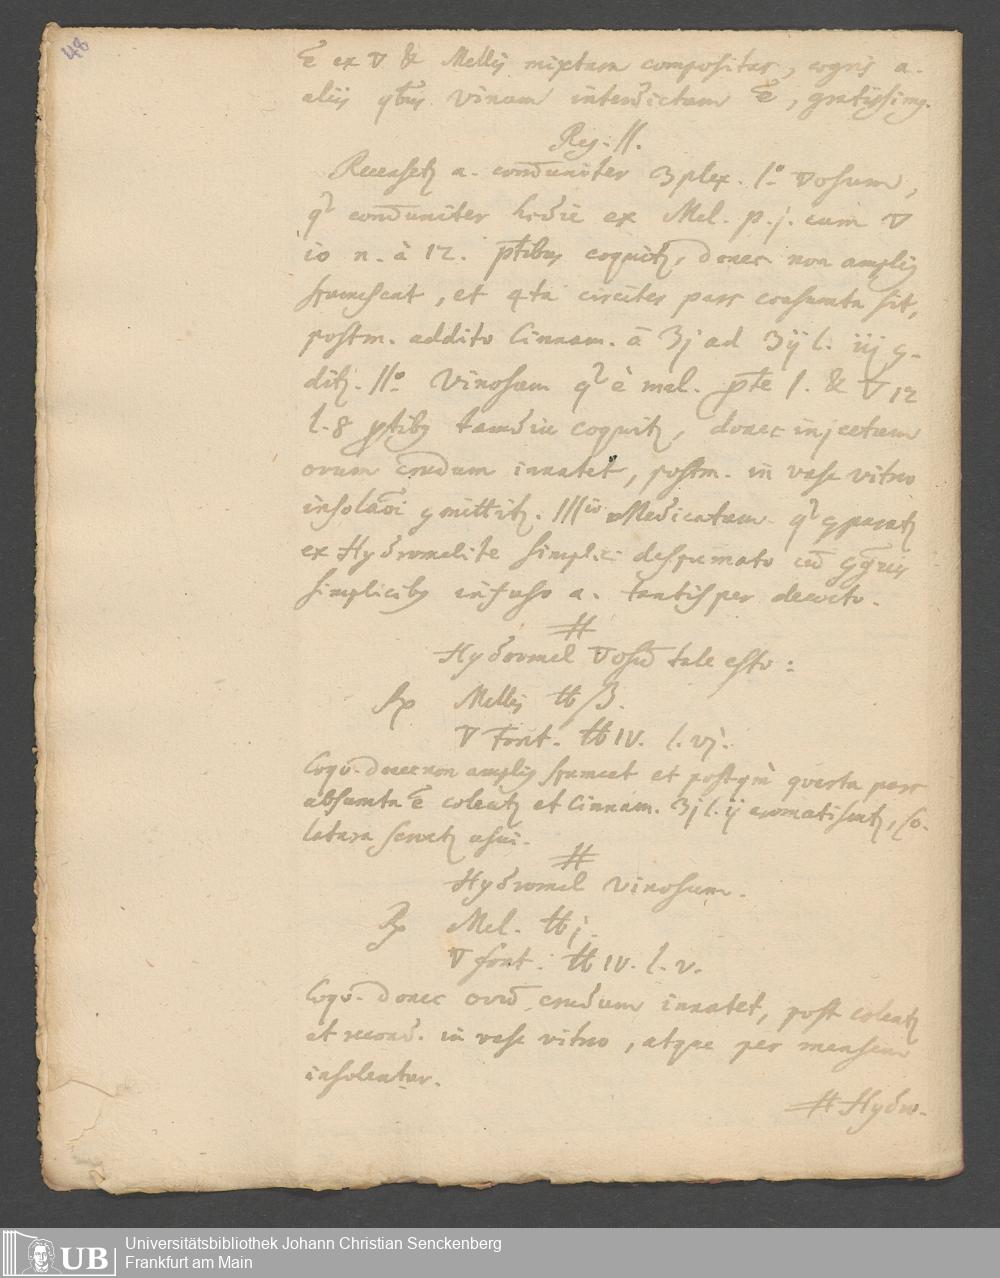 48
ē ex ▽ & Mellis mixtura compositus, ægris a.
aliis qbus vinum interdictum ē, gratissimus.
Reg. II.
Recenset a. communiter 3plex. I.º ▽osum,
q communiter hodie ex Mel. p. j. cum ▽
io n. à 12. ptibus coquit, donec non amplius
spumescat, et 4ta circiter pars consumta sit,
postm. addito Cinnam. à ʒj ad ʒij l. iij
dit. II.º Vinosum q è mel. pte I. & ▽ 12
l. 8 ptibus tamdiu coquit, donec injectum
ovum crudum innatet, postm. in vase vitreo
insolaōi committit. III.io Medicatum q pparat
ex Hydromelite simplici despumato cū
simplicibus infuso a. tantisper decocto.
#
Hydromel ▽osū tale esto:
℞ Mellis ℔ ß.
▽ Font. ℔ IV. l. vj.
Coqu. donec non amplius spumet et postqm quarta pars
absumta ē coleat et Cinnam. ʒj l. ij aromatiset, co-
latura servet usui.
#
Hydromel vinosum.
℞ Mel. ℔ j.
▽ font. ℔ IV. l. v.
Coqu. donec ovū crudum innatet, post coleat
et recond. in vase vitreo, atque per mensem
insoletur.
# Hydro-
Universitätsbibliothek Johann Christian Senckenberg
UB
Frankfurt am Main